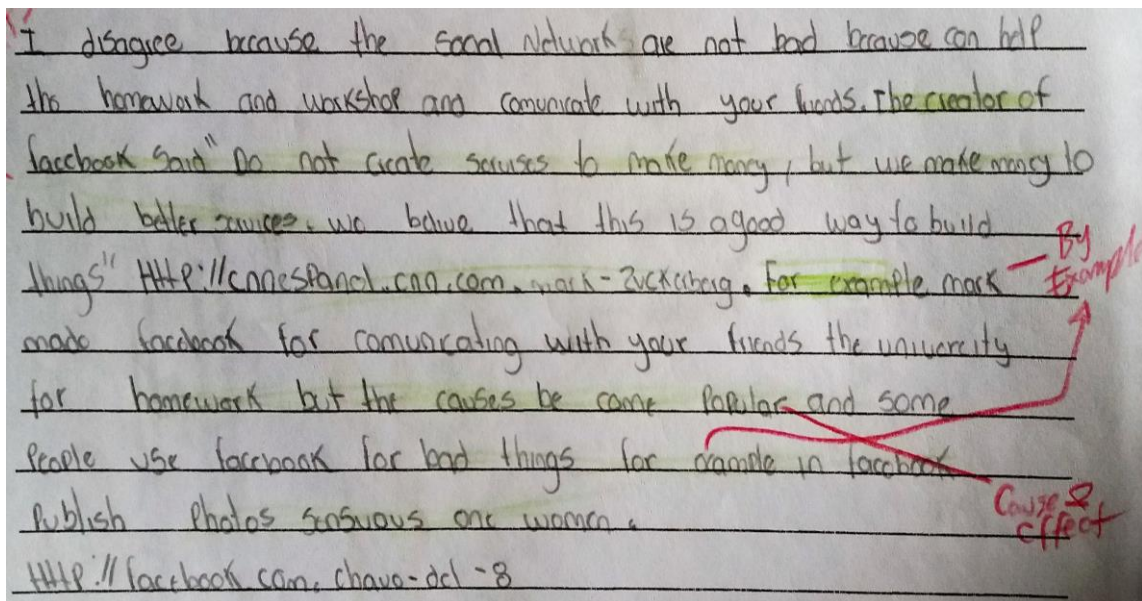 I disagree because the social Network are not bad because can help
the homework and workshop and comunicate with your friends. The creator of
facebook said" Do not create servises to make money, but we make money to
build better services. we belive that this is a good way to build
things" HttP://cnnesPanol.cnn.com. mark-Zuckerberg. For example mark
By
Example
made facebook for comunicating with your friends the univercity
for homework but the causes be came Popular and some
People use facebook for bad things for example in facebook
Cause &
effect
Publish Photos sensuous one women.
HttP://facebook.com. chavo-del-8